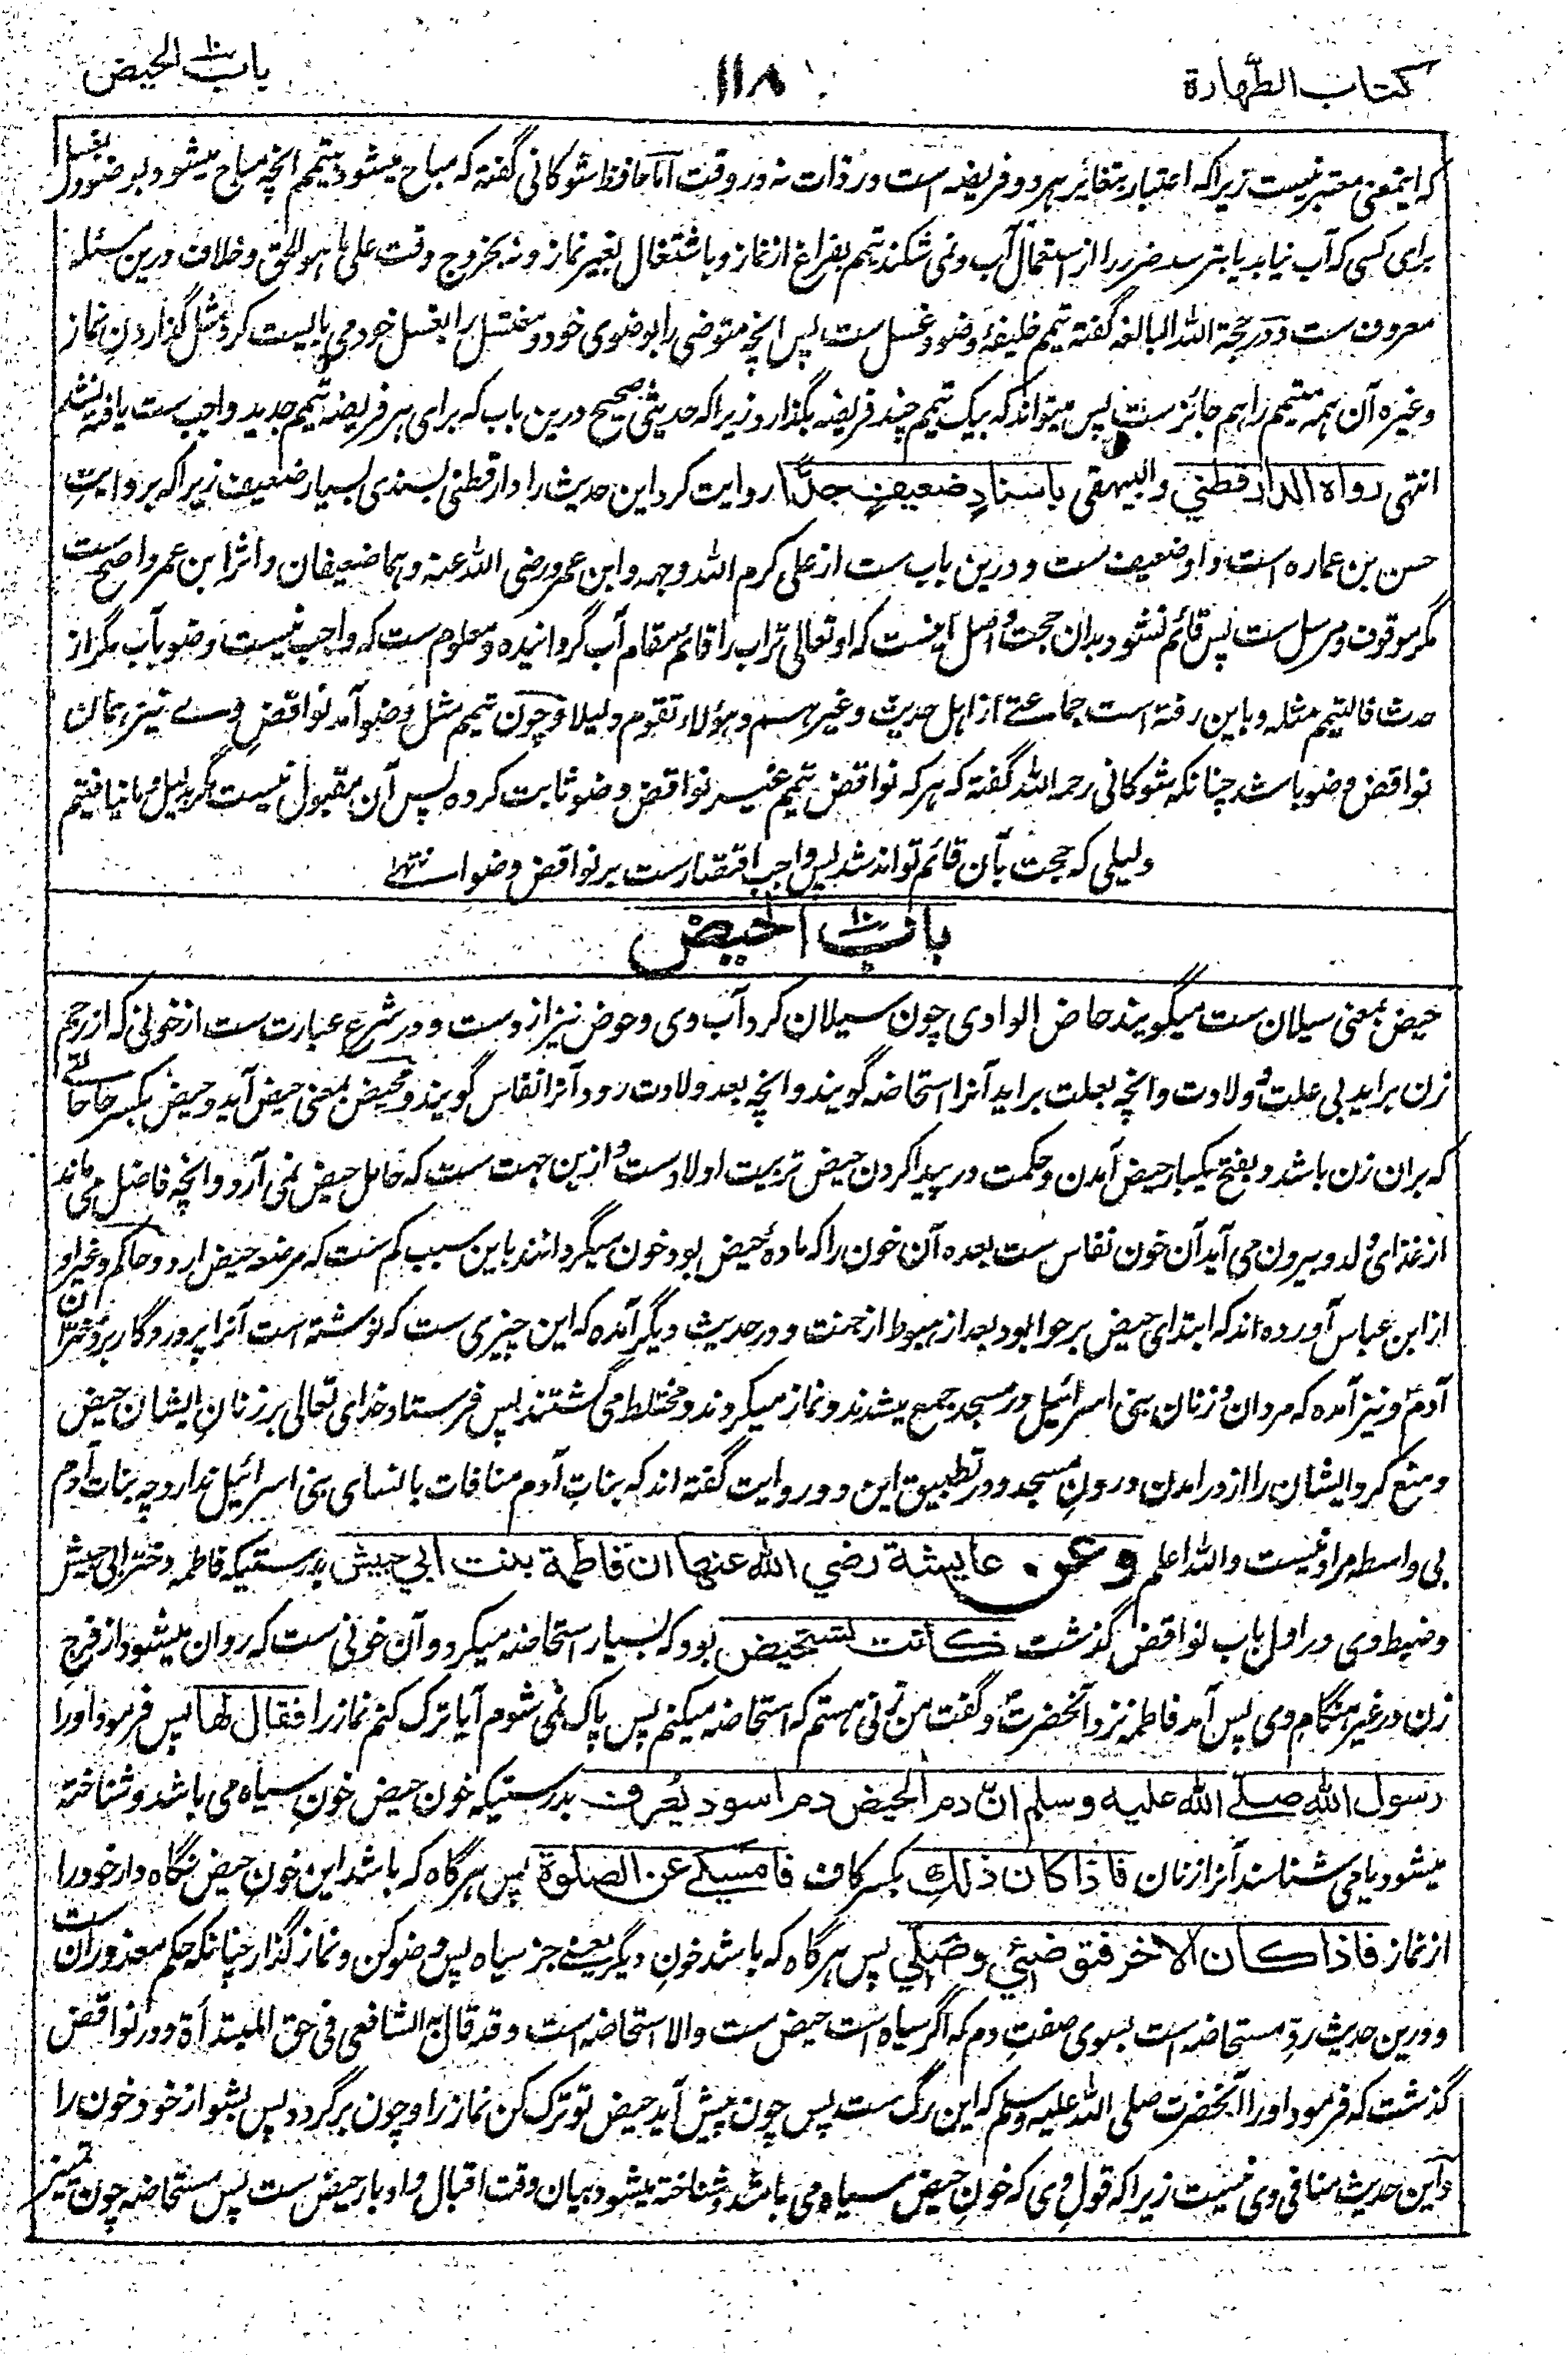 كتاب الطهارة
١١٨
باب الحيض
که اینمعنی معتبر نیست زیراکه اعتبار بتغائر هر دو فریضه است در ذات نه در وقت اما حافظ شوکانی گفته که مباح میشود بتیمم انچه مباح میشود بوضو و بغسل
برای کسی که آب نیابد یا بترسد ضرر را از استعمال آب و نمی شکند تیمم بفراغ از نماز و باشتغال بغیر نماز و نه بخروج وقت علی ما هو الحق و خلاف درین مسئله
معروف ست و در حجة الله البالغه گفته تیمم خلیفهٔ وضو و غسل ست پس انچه متوضی را بوضوی خود و مغتسل را بغسل خود می بایست کرد مثل گذاردن نماز
وغیره آن همه متیمم را هم جائز ست پس میتواند که بیک تیمم چند فریضه بگذارد زیراکه حدیثی صحیح درین باب که برای هر فریضه تیمم جدید واجب ست یافته نشد
انتهی رواه الدارقطني والبيهقي باسنادٍ ضعيفٍ جدًّا روایت کرد این حدیث را دارقطنی بسندی بسیار ضعیف زیراکه بروایت
حسن بن عماره است و او ضعیف ست و درین باب ست از علی کرم الله وجهه و ابن عمرو رضی الله عنه و هما ضعیفان و اثر ابن عمر و اصح ست
مگر موقوف و مرسل ست پس قائم نشود بدان حجت و اصل اینست که او تعالی تراب را قائم مقام آب گردانیده و معلوم ست که واجب نیست وضو بآب مگر از
حدث فالتیمم مثله و باین رفته است جماعتے از اهل حدیث و غیرهم و هؤلاء تقوم دلیلا و چون تیمم مثل وضو آمد نواقضِ وے نیز همان
نواقض وضو باشد چنانکه شوکانی رحمه الله گفته که هرکه نواقض تیمم غیر نواقض وضو ثابت کرده پس آن مقبول نیست مگر بدلیل و ما نیافتیم
دلیلی که حجت بآن قائم تواند شد پس واجب اقتصار ست بر نواقض وضو انتهے
باب الحيض
حیض بمعنی سیلان ست میگویند حاض الوادی چون سیلان کرد آب وی و حوض نیز ازوست و در شرع عبارت ست از خونی که از رحم
زن براید بی علت و ولادت و انچه بعلت براید آنرا استحاضه گویند و انچه بعد ولادت رود آنرا نفاس گویند و محیض بمعنی حیض آید و حیض بکسر حا حالتے
که بران زن باشد و بفتح یکبار حیض آمدن و حکمت در پیدا کردن حیض تربیت اولادست و ازین جهت ست که حامل حیض نمی آرد و انچه فاضل می ماند
از غذای ولد و بیرون می آید آن خون نفاس ست بعده آن خون را که مادهٔ حیض بود خون میگردانند باین سبب کم ست که مرضعه حیض ارد و حاکم و غیر او
از ابن عباس آورده اند که ابتدای حیض بر حوا بود بعد از هبوط از جنت و در حدیث دیگر آمده که این چیزی ست که نوشته است آنرا پروردگار بر دختران
آدم و نیز آمده که مردان و زنان بنی اسرائیل در مسجد جمع میشدند و نماز میکردند و مختلط می گشتند پس فرستاد خدای تعالی بر زنانِ ایشان حیض
و منع کرد ایشان را از درامدن درونِ مسجد و در تطبیق این دو روایت گفته اند که بناتِ آدم منافات با نسای بنی اسرائیل ندارد چه بنات آدم
بی واسطه مراد نیست والله اعلم وعن عايشة رضي الله عنها ان فاطمة بنت ابي حبيش بدرستیکه فاطمه دختر ابی حبیش
و ضبط وی در اول باب نواقض گذشت كانت تستحيض بود که بسیار استحاضه میکرد و آن خونی ست که روان میشود از فرج
زن در غیر هنگامِ وی پس آمد فاطمه نزد آنحضرت و گفت من زنی هستم که استحاضه میکنم پس پاک نمی شوم آیا ترک کنم نماز را فقال لها پس فرمود او را
رسول الله صلے الله عليه وسلم انّ دم الحيض دم اسود يُعرف بدرستیکه خون حیض خونِ سیاه می باشد و شناخته
میشود یا می شناسند آنرا زنان فاذا كان ذلكِ بکسر کاف فامسكے عن الصلوة پس هرگاه که باشد این خونِ حیض نگاه دار خود را
از نماز فاذا كان الاخر فتوضئي وصَلّي پس هرگاه که باشد خونِ دیگر یعنے جز سیاه پس وضو کن و نماز گذار چنانکه حکم معذوران ست
و درین حدیث ردِّ مستحاضه است بسوی صفتِ دم که اگر سیاه است حیض ست والا استحاضه است و قد قال به الشافعی فی حق المبتدأة و در نواقض
گذشت که فرمود او را آنحضرت صلی الله علیه وسلم که این رگ ست پس چون پیش آید حیض تو ترک کن نماز را و چون برگردد پس بشو از خود خون را
و این حدیث منافی وی نیست زیراکه قولِ وی که خونِ حیض سیاه می باشد و شناخته میشود بیان وقت اقبال و ادبار حیض ست پس مستحاضه چون تمیز